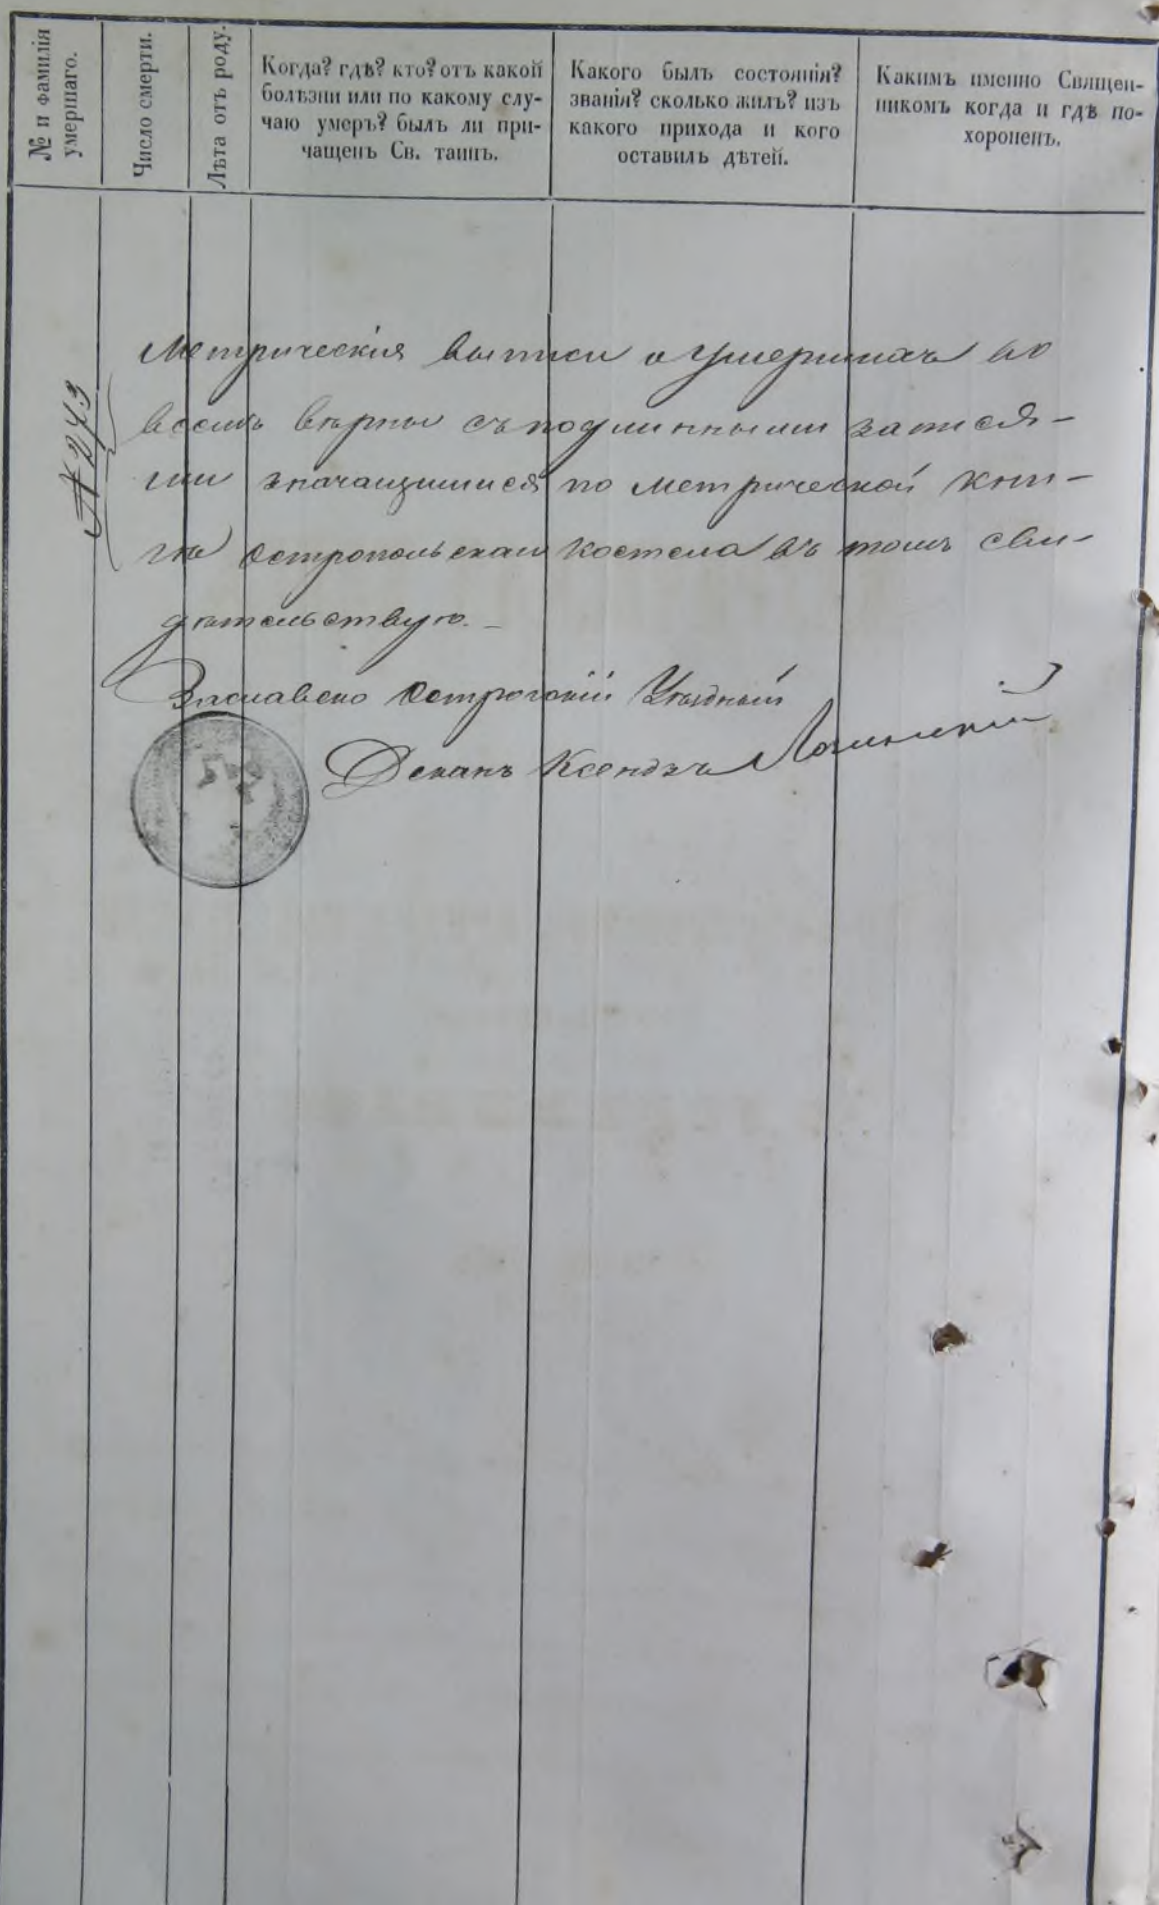 № и фамилія
умершаго.
Число смерти.
Лѣта отъ роду.
Когда? гдѣ? кто? отъ какой
болѣзни или по какому слу-
чаю умеръ? былъ ли при-
чащенъ Св. таинъ.
Какого былъ состоянія?
званія? сколько жилъ? изъ
какого прихода и кого
оставилъ дѣтей.
Какимъ именно Священ-
никомъ когда и гдѣ по-
хороненъ.
№ 243
Метрическія выписи о умершихъ во
всемъ вѣрны съ подлинными запися-
ми значащимися по метрической кни-
гѣ Остропольскаго костела въ томъ сви-
дѣтельствую. –
Заславско Острогскій Уѣздный
Деканъ Ксендзъ